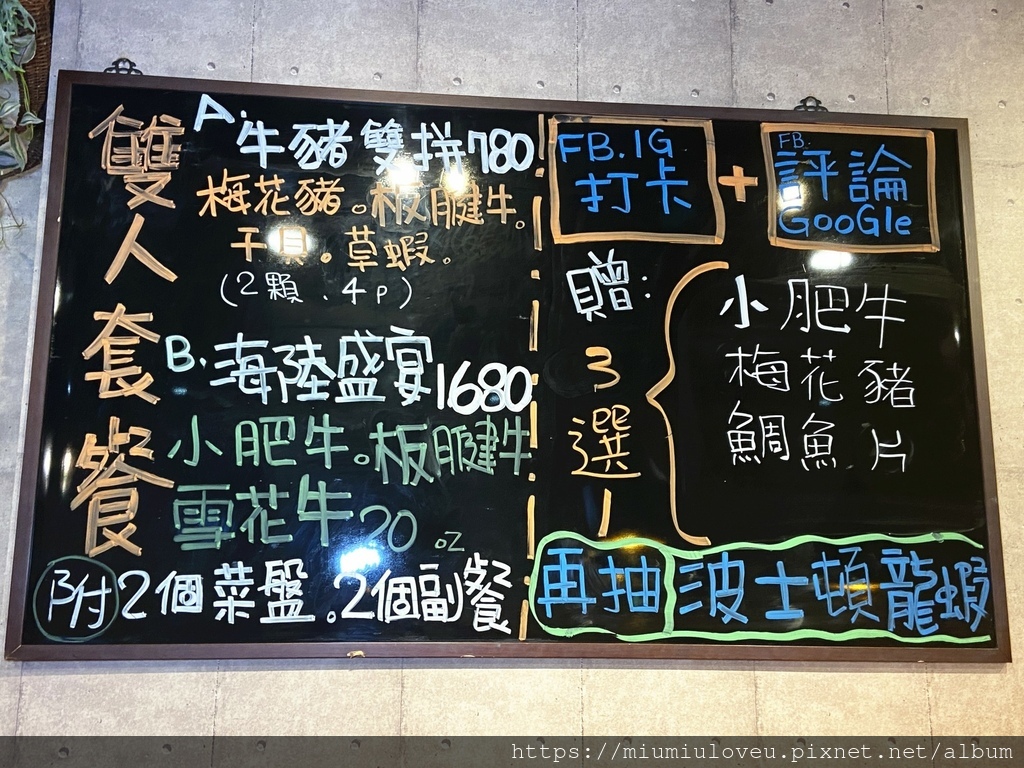 雙人套餐
A. 牛豬雙拼780
梅花豬。板腱牛。
干貝。草蝦。
(2顆、4p)
B. 海陸盛宴1680
小肥牛。板腱牛
雪花牛20oz
附 2個菜盤。2個副餐
FB.IG
打卡
+
FB.
評論
GooGle
贈:
3選1
小肥牛
梅花豬
鯛魚片
再抽 波士頓龍蝦
https://miumiuloveu.pixnet.net/album